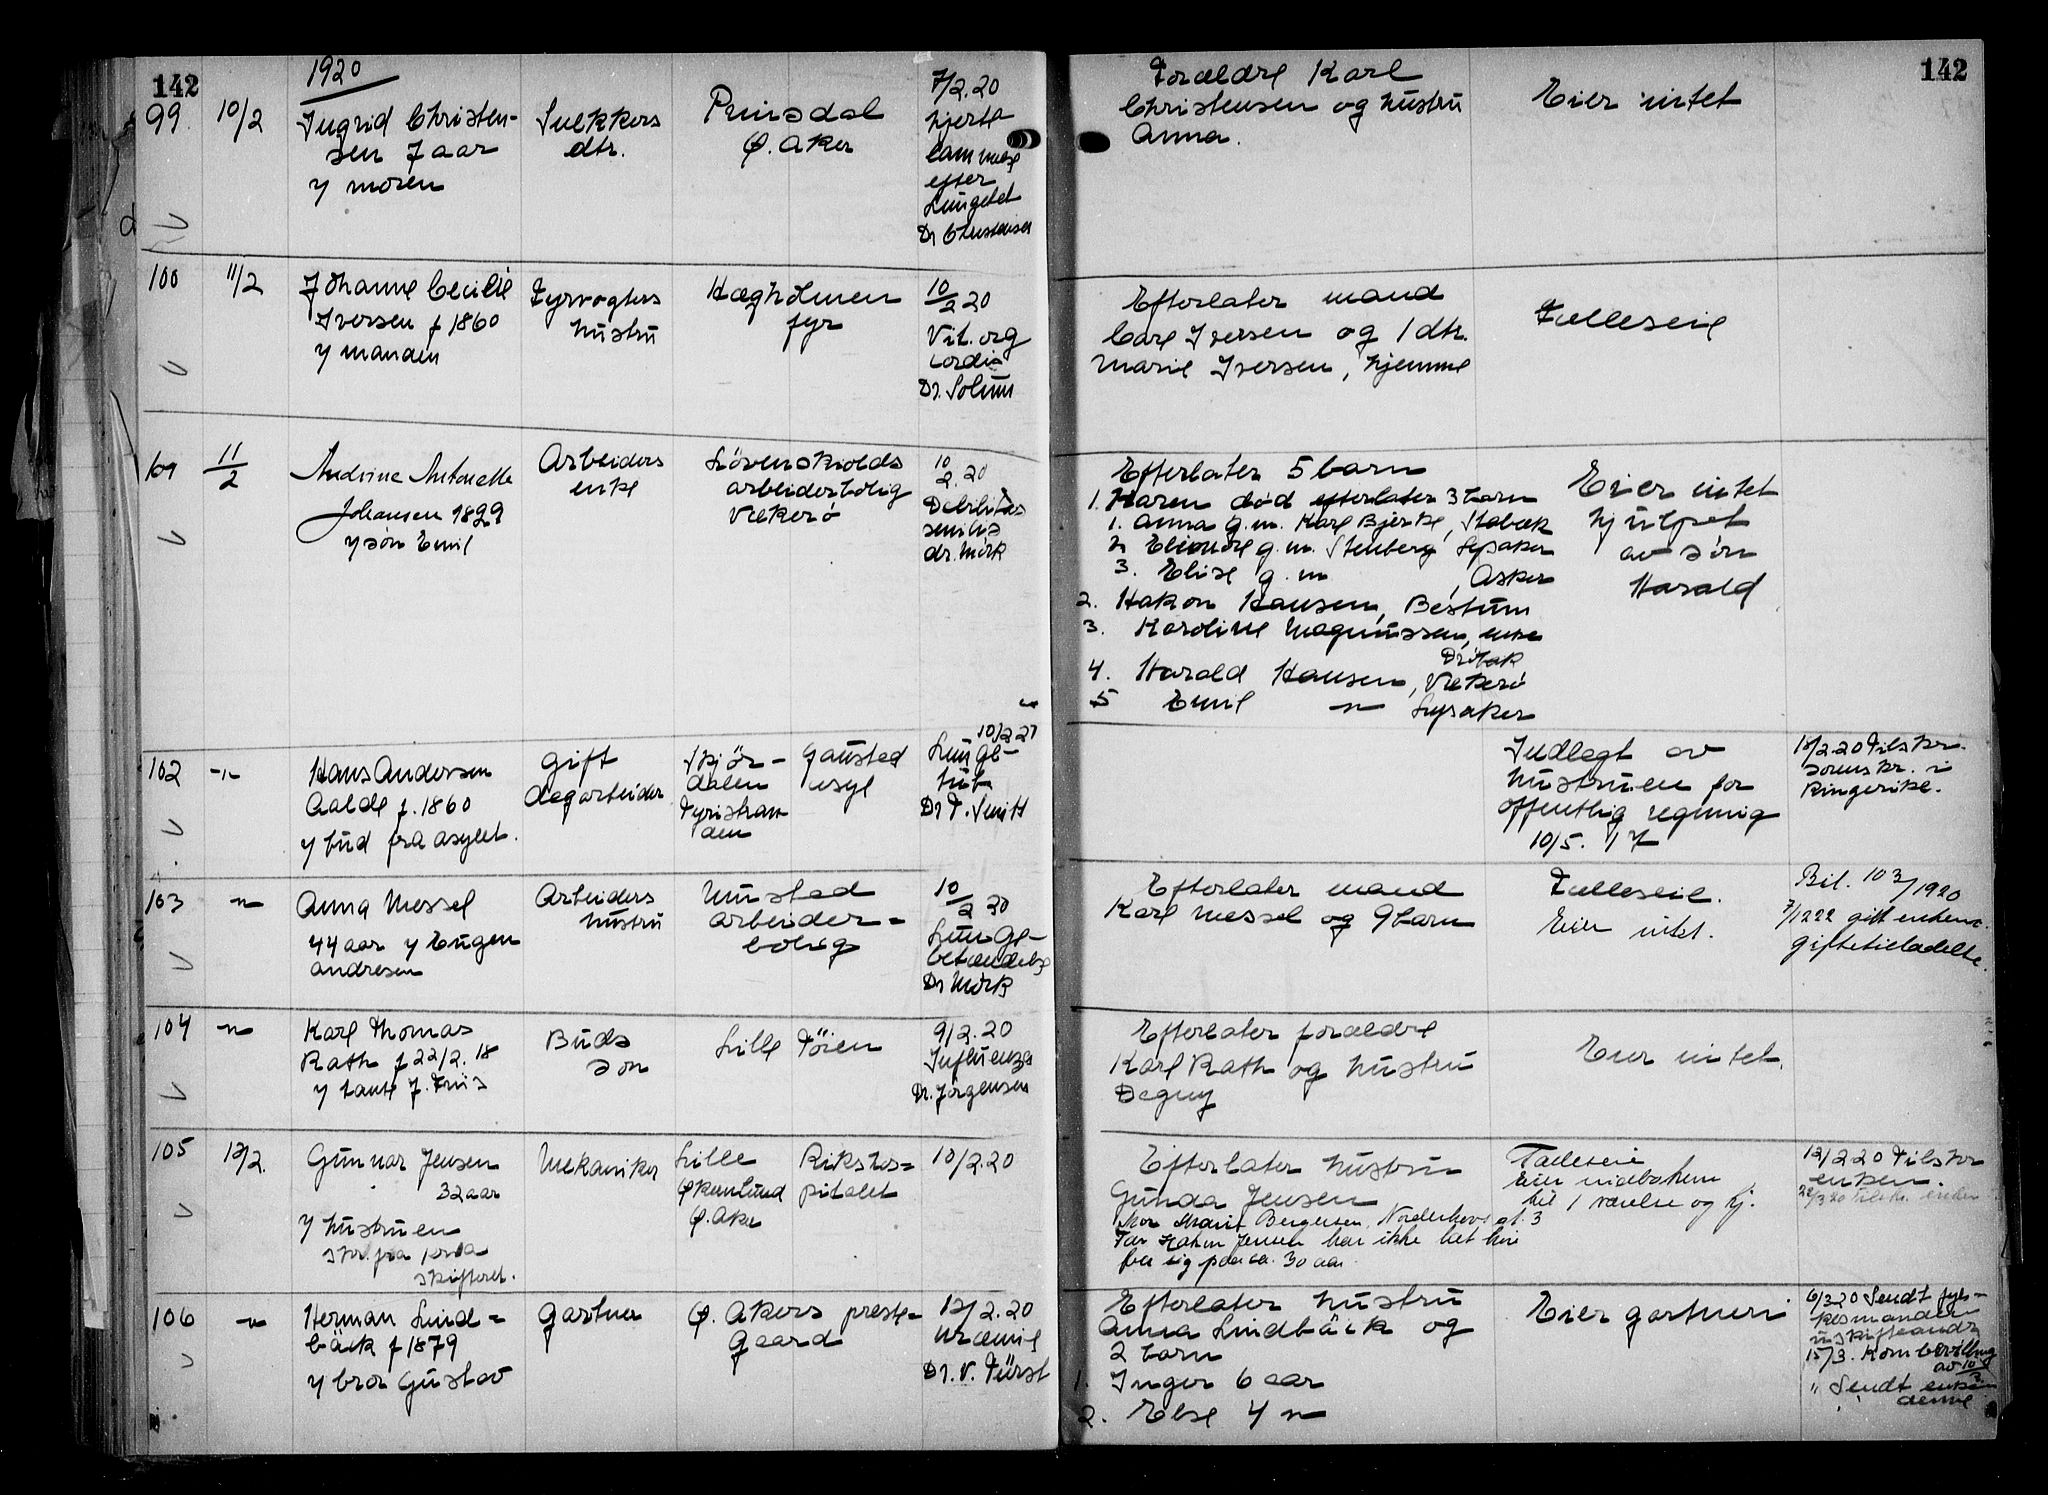 142
142
1920
99
10/2
Ingrid Christen-
sen 7 aar
y moren
dtr.
Prinsdal
Ø. Aker
7/2.20
hjerte
lammelse
efter
Dr Christensen
Forældre Karl
Christensen og hustru
Anna.
Eier intet
100
11/2
Johanne Cecilie
Iversen f 1860
y manden
Fyrvogters
hustru
Hægholmen
fyr
10/2 20
Vit. org
cordis
Dr. Solum
Efterlater mand
Carl Iversen og 1 dtr.
Marie Iversen, hjemme
Fælleseie
101
11/2
Andrine Antonette
Johansen 1829
y søn Emil
Arbeiders
enke
Løvenskiolds
arbeiderbolig
Vækerø
10/2.20
Debilitas
senilis
dr. Mørk
Efterlater 5 barn
1. Karen død efterlater 3 barn
1. Anna g.m. Karl Bjerke, Stabæk
2. Elionore g.m. Stenberg Lysaker
3. Elise g.m , Asker
2. Hakon Hansen, Bestum
3. Karoline Magnussen, enke
Drøbak
4. Harald Hansen, Vækerø
5 Emil -"- Lysaker
Eier intet
hjulpet
av søn
Harald
102
-"-
Hans Andersen
Aalde f. 1860
y bud fra asylet.
gift
dagarbeider
dalen
Fyristran
den
Gausted
asyl
10/2.20
Lunge-
tub
Dr F. Smith
Indlagt av
hustruen for
offentlig regning
10/5. 17
12/2.20 Tilskr.
sorenskr. i
Ringerike.
103
-"-
Anna Messel
44 aar y Eugen
Andresen
Arbeiders
hustru
Mustad
arbeider=
bolig
10/2 20
Lunge-
betændelse
Dr Mørk
Efterlater mand
Karl Messel og 9 barn
Fælleseie.
Eier intet.
Bil. 103/1920
7/1222 gitt enkem.
giftetilladelse.
104
-"-
Karl Thomas
Rath f 22/2. 18
y tante J. Friis
Buds
søn
Lille Tøien
9/2.20
Influenza
Dr. Jørgensen
Efterlater forældre
Karl Rath og hustru
Dagny
Eier intet.
105
12/2.
Gunnar Jensen
32 aar
y hustruen
skiftoret.
Mekaniker
Lille
Ø. Aker
Rikshos=
pitalet
10/2.20
Efterlater hustru
Gunda Jensen
Mor Marit Bergersen, Norderhovs gt. 3
Far Hakon Jensen har ikke latt høre
fra sig paa ca. 30 aar.
Fælleseie
Eier indbo kun
til 1 værelse og kj.
12/2 20 Tilskr
enken.
22/3 20 tilskr. enken
106
-"-
Herman Lind=
bäck f 1879
y bror Gustav
Gartner
Ø. Akers preste=
gaard
12/2.20
Uræmie
Dr. V. Fürst
Efterlater hustru
Anna Lindbäck og
2 barn
1. Inger 6 aar
2. Else 4 "
Eier gartneri
6/3 20 Sendt fyl=
kesmanden
uskifteandr
15/3. Kom bevilling
av 10/3.
" Sendt enken
denne